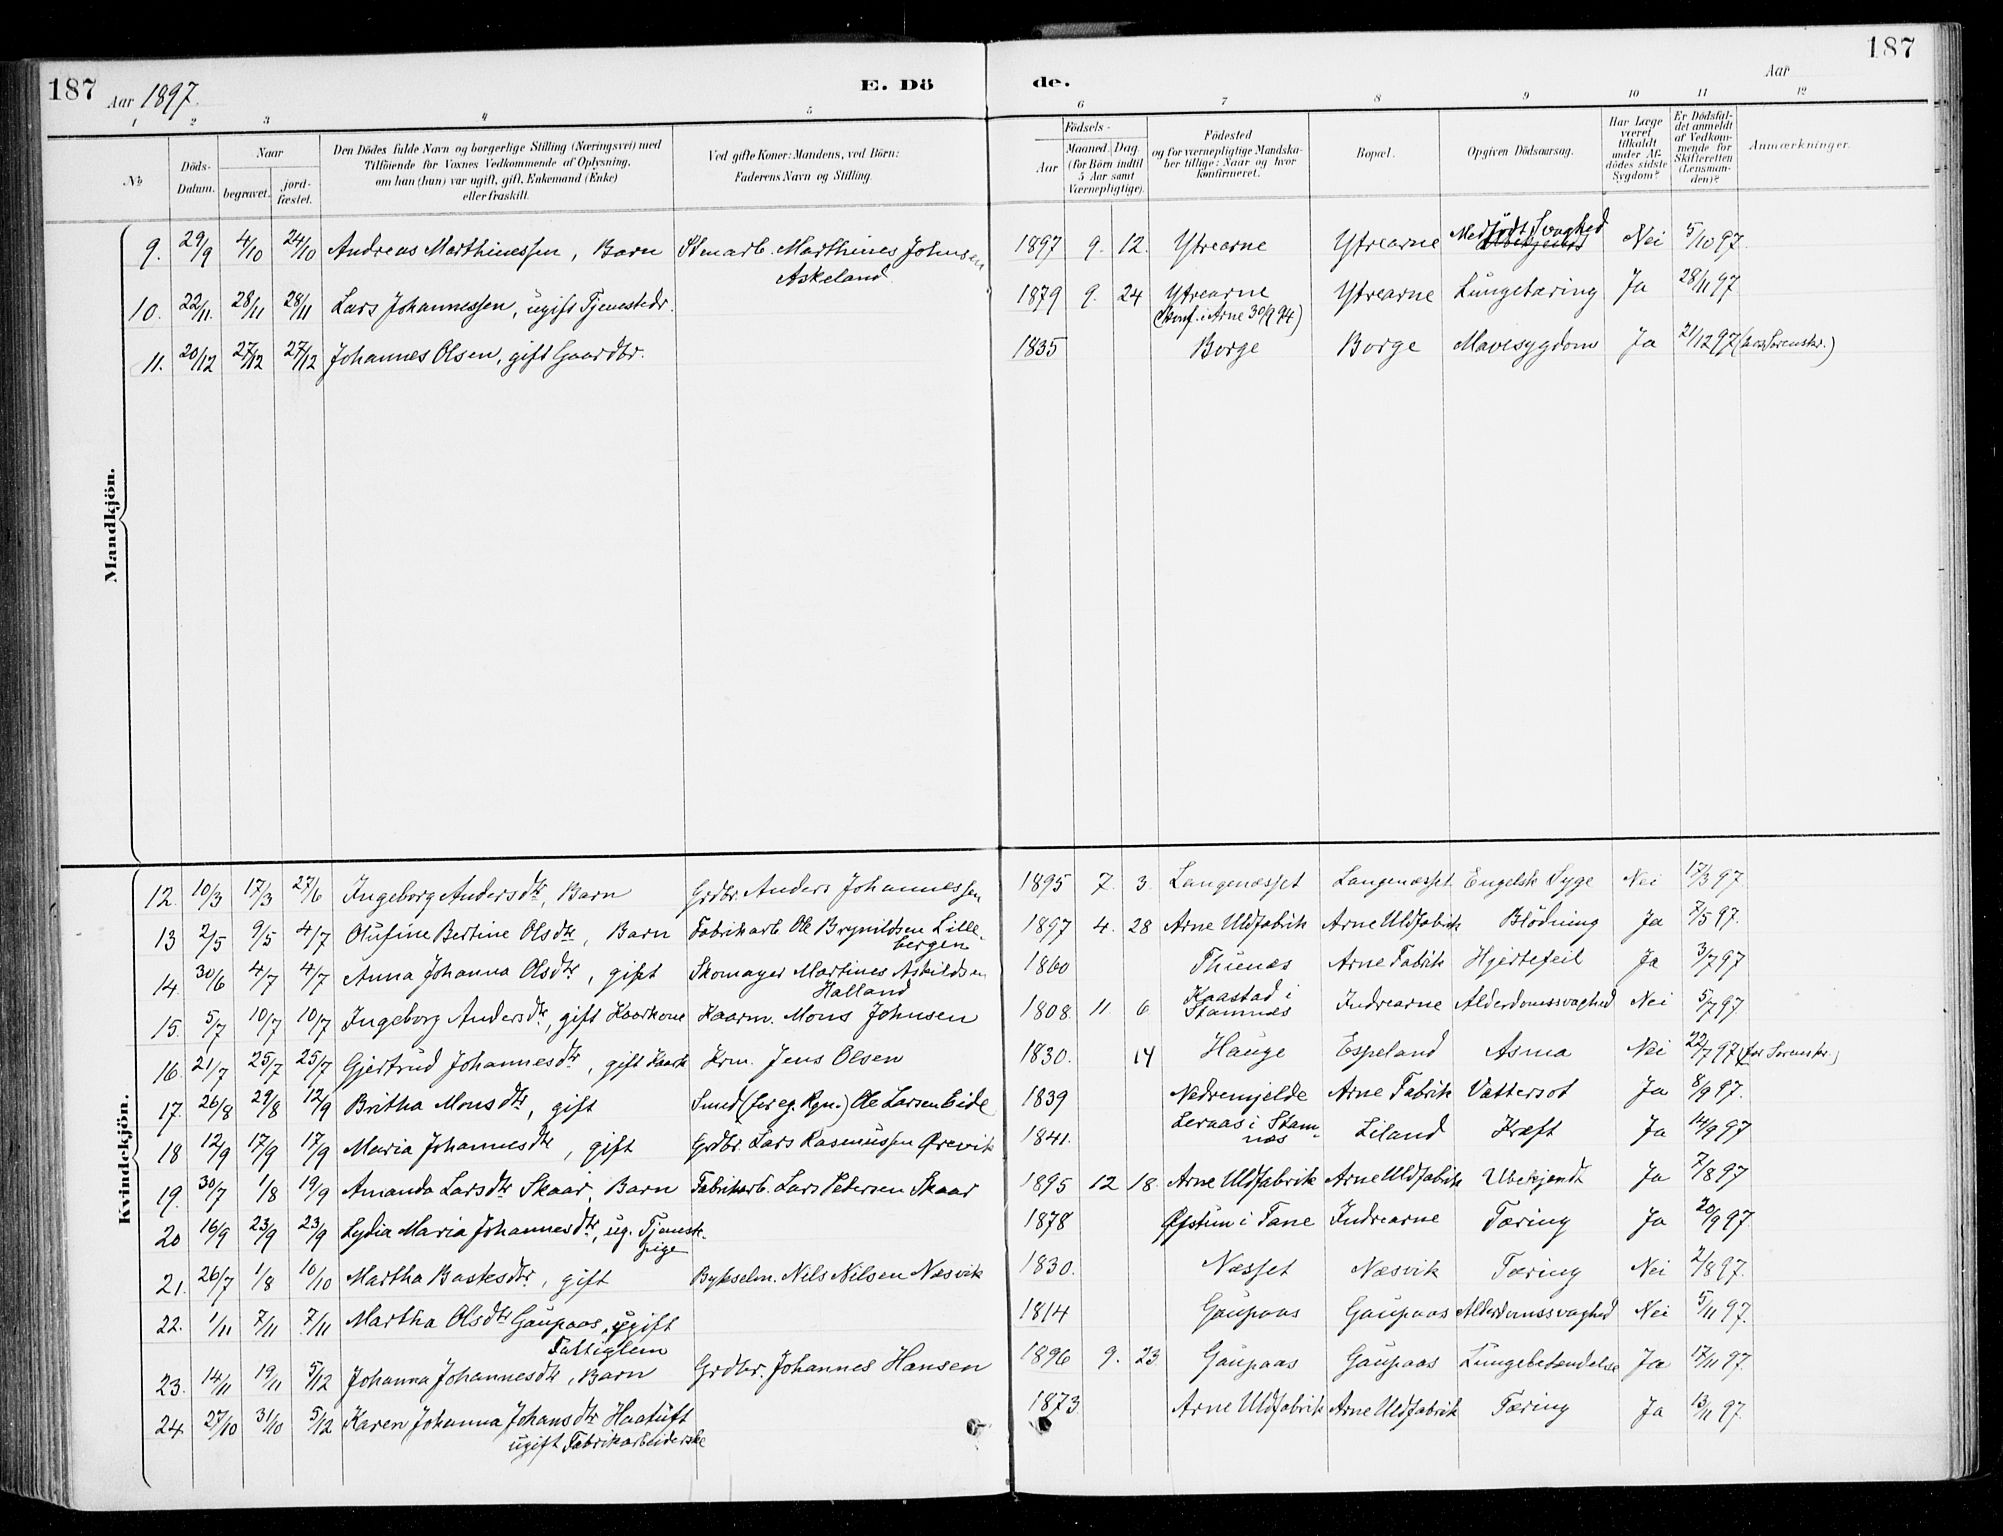 187 Aar 1897. E. Dö de. Aar 187
1 2 3 4 5 6 7 8 9 10 11 12
No
Döds-Datum.
Naar
begravet.
jord-fæstet.
Den Dödes fulde Navn og borgerlige Stilling (Næringsvei) med
Tilföiende for Voxnes Vedkommende af Oplysning,
om han (hun) var ugift, gift, Enkemand (Enke)
eller fraskilt.
Ved gifte Koner: Mandens, ved Börn:
Faderens Navn og Stilling.
Födsels-
Aar
Maaned. Dag.
(for Börn indtil
5 Aar samt
Værnepligtige).
Födested
og for værnepligtige Mandska-
ber tillige: Naar og hvor
konfirmeret.
Bopæl.
Opgiven Dödsaarsag.
Har Læge
været
tilkaldt
under Af-
dödes sidste
Sygdom?
Er Dödsfal-
det anmeldt
af Vedkom-
mende for
Skifteretten
(Lensman-
den)?
Anmærkninger.
Mandkjön.
9. 29/9 4/10 24/10 Andreas Marthinessen, Barn Stenarb. Marthines Johnsen Askeland 1897 9. 12. Ytrearne Ytrearne Medfødt Svaghed Nei 5/10 97.
10. 22/11. 28/11 28/11 Lars Johannessen, ugift Tjenestedr. 1879 9. 24 Ytrearne (Konf. i Arne 30/9 94) Ytrearne Lungetæring Ja 28/11 97
11. 20/12 27/12 27/12 Johannes Olsen, gift Gaardbr. 1835 Borge Borge Mavesygdom Ja 21/12 97 (hos Sorenskr.)
Kvindekjön.
12. 10/3 17/3 27/6 Ingeborg Andersdtr, Barn Grdbr. Anders Johannessen 1895 7. 3. Langenæsset Langenæsset Engelsk Syge Nei 17/3 97.
13 2/5 9/5 4/7 Olufine Bertine Olsdtr, Barn Fabrikarb. Ole Brynildsen Lille-bergen 1897 4. 28 Arne Uldfabrik Arne Uldfabrik Blödning Ja 7/5 97.
14. 30/6 4/7 4/7 Anna Johanna Olsdtr, gift Skomager Martines Askildsen Halland 1860 Thunes Arne Fabrik Hjertefeil Ja 3/7 97
15. 5/7 10/7 10/7 Ingeborg Andersdtr, gift Kaarkone Kaarm. Mons Johnsen 1808. 11 6 Kaastad i Stamnes Indrearne Alderdomssvaghed Nei 5/7 97
16. 21/7 25/7 25/7 Gjertrud Johannesdtr, gift Kaark Krm. Jens Olsen 1830. 14 Hauge Espeland Asma Nei 22/7 97 (for Sorenskr.)
17. 26/8 29/8 12/9 Britha Monsdtr, gift Smed (for eg. Rgn.) Ole Larsen Eide 1839 Nedremjelde Arne Fabrik Vattersot Ja 8/9 97.
18 12/9 17/9 17/9 Maria Johannesdtr, gift Grdbr. Lars Rasmussen Ørevik 1841. Leraas i Stam-næs Liland Kræft Ja 14/9 97
19. 30/7 1/8 19/9 Amanda Larsdtr Skaar, Barn Fabrikarb. Lars Petersen Skaar 1895 12 18. Arne Uldfabrik Arne Uldfabrik Ubekjendt Ja 7/8 97
20 16/9 23/9 23/9 Lydia Maria Johannesdtr, ug. Tjenest-pige 1878 Øfstun i Tane Indrearne Tæring Ja 20/9 97.
21. 26/7 1/8 10/10 Martha Bastesdtr, gift Bykselm. Nils Nilsen Næsvik 1830. Næsset Næsvik Tæring Nei 2/8 97.
22. 1/11 7/11 7/11 Martha Olsdtr Gaupaas, ugift Fattiglem 1814 Gaupaas Gaupaas Alderdomssvaghed Nei 5/11 97.
23. 14/11 19/11 5/12 Johanna Johannesdtr, Barn Grdbr. Johannes Hansen 1896 9. 23 Gaupaas Gaupaas Lungebetændelse Ja 17/11 97.
24. 27/10 31/10 5/12 Karen Johanna Johansdtr Haatuft ugift Fabrikarbeiderske 1873 Arne Uldfabrik Arne Uldfabrik Tæring Ja 13/11 97.